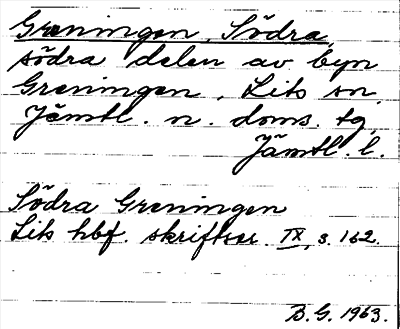 Greningen, Södra,
södra delen av byn
Greningen, Lits sn,
Jämtl. n. doms. tg,
Jämtl. l.
Södra Greningen
Lits hbf. skriftser. IX, s. 162.
B.G. 1963.